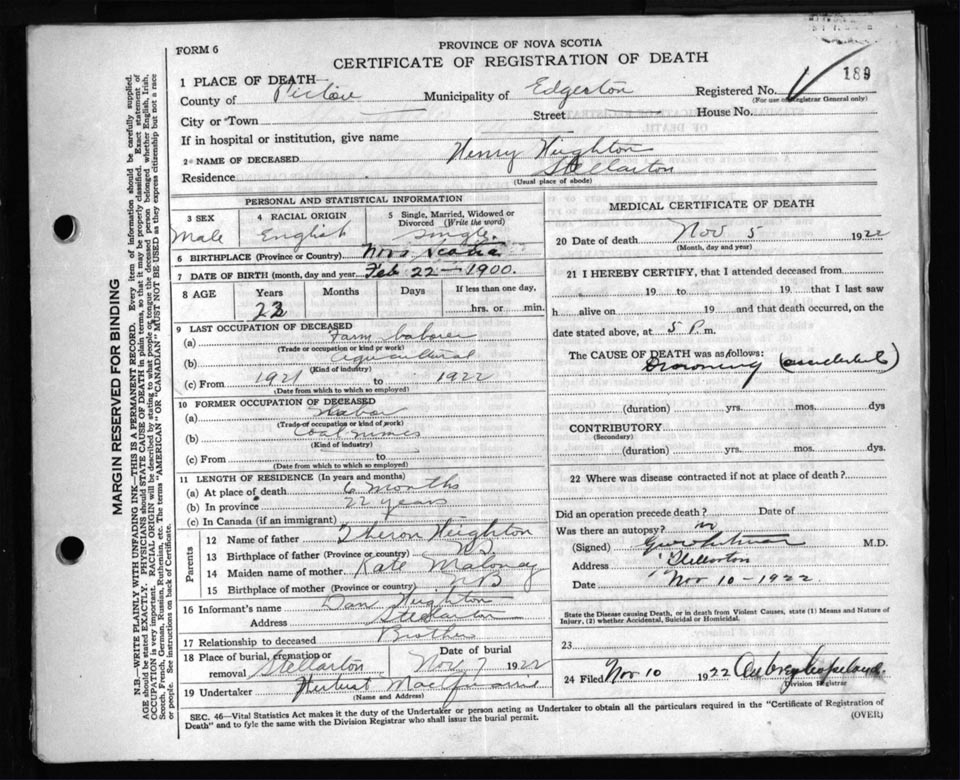 FORM 6
PROVINCE OF NOVA SCOTIA
CERTIFICATE OF REGISTRATION OF DEATH
189
1 PLACE OF DEATH—
County of Pictou Municipality of Edgerton Registered No.
(For use of Registrar General only)
City or Town Street House No.
If in hospital or institution, give name
2 NAME OF DECEASED Henry Heighton
Residence Stellarton
(Usual place of abode)
PERSONAL AND STATISTICAL INFORMATION
3 SEX
Male
4 RACIAL ORIGIN
English
5 Single, Married, Widowed or Divorced (Write the word)
Single.
6 BIRTHPLACE (Province or Country) Nova Scotia
7 DATE OF BIRTH (month, day and year) Feb 22 — 1900.
8 AGE Years Months Days If less than one day,
22 hrs. or min.
9 LAST OCCUPATION OF DECEASED
(a) Farm Laborer
(Trade or occupation or kind of work)
(b) Agricultural
(Kind of industry)
(c) From 1921 to 1922
(Date from which to which so employed)
10 FORMER OCCUPATION OF DECEASED
(a) Labor
(Trade or occupation or kind of work)
(b) Coal mines
(Kind of industry)
(c) From
(Date from which to which so employed)
11 LENGTH OF RESIDENCE (In years and months)
(a) At place of death 6 months
(b) In province 22 years
(c) In Canada (if an immigrant)
Parents
12 Name of father Theron Heighton
13 Birthplace of father (Province or country) NS
14 Maiden name of mother Kate Maloney
15 Birthplace of mother (Province or country) NS
16 Informant's name Dan Heighton
Address Stellarton
17 Relationship to deceased Brother
18 Place of burial, cremation or removal Stellarton Date of burial Nov 7 1922
19 Undertaker Herbert
(Name and Address)
MEDICAL CERTIFICATE OF DEATH
20 Date of death Nov 5 1922
(Month, day and year)
21 I HEREBY CERTIFY, that I attended deceased from
19 to 19 that I last saw
h alive on 19 and that death occurred, on the
date stated above, at 5 P. m.
The CAUSE OF DEATH was as follows:
Drowning (accidental)
(duration) yrs. mos. dys
CONTRIBUTORY
(Secondary)
(duration) yrs. mos. dys.
22 Where was disease contracted if not at place of death?
Did an operation precede death? Date of
Was there an autopsy? no
(Signed) M.D.
Address Stellarton
Date Nov 10 - 1922
State the Disease causing Death, or in death from Violent Causes, state (1) Means and Nature of Injury, (2) whether Accidental, Suicidal or Homicidal.
23
24 Filed Nov 10 1922 Aubrey Copeland
Division Registrar
SEC. 46—Vital Statistics Act makes it the duty of the Undertaker or person acting as Undertaker to obtain all the particulars required in the "Certificate of Registration of
Death" and to fyle the same with the Division Registrar who shall issue the burial permit.
(OVER)
MARGIN RESERVED FOR BINDING
N.B.—WRITE PLAINLY WITH UNFADING INK—THIS IS A PERMANENT RECORD. Every item of information should be carefully supplied.
AGE should be stated EXACTLY. PHYSICIANS should STATE CAUSE OF DEATH in plain terms, so that it may be properly classified. Exact statement of
OCCUPATION is very important. RACIAL ORIGIN will be described by stating to what people or tongue the deceased person belonged whether English, Irish,
Scotch, French, German, Russian, Ruthenian, etc. The terms "AMERICAN" OR "CANADIAN" MUST NOT BE USED as they express citizenship but not a race
or people. See instructions on back of Certificate.